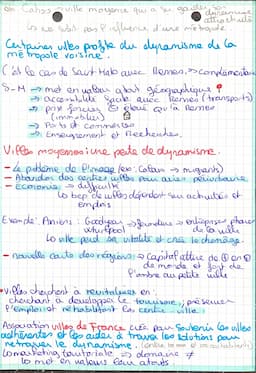 ex: Calais → ville moyenne qui a su garder son dynamisme
attractivité
ne subit pas l'influence d'une métropole.
Certaines villes profite du dynamisme de la
métropole voisine.
C'est le cas de Saint Malo avec Rennes. ⇒ complémentaire
S-M → met en valeur atout géographique
→ accessibilité facile avec Rennes (transports)
→ prix foncier + élevé qu'à Rennes
(immobilier)
→ Ports et commerces
→ Enseignement et Recherches.
Villes moyennes : une perte de dynamisme.
- Le problème de l'image (ex: Calais → migrants)
- Abandon des centres villes pour aires périurbaine
- Economique → difficulté
bcp de villes dépendent leur activités et
emplois
Exemple: Amiens : Goodyear → fermeture → entreprises phares
whirlpool de la ville
La ville perd sa vitalité et crée le chômage.
- nouvelle carte des régions → Capital attire de + en +
de monde et font de
l'ombre au petite ville
• Villes cherchent à revitaliser en :
cherchant à développer le tourisme, préserver
l'emploi et réhabilitant les centre ville.
Association villes de France créé pour soutenir les villes
adhérentes et les aider à trouver les solutions pour
retrouver le dynamisme.
Le marketing territoriale → domaine ≠
La met en valeurs leurs atouts